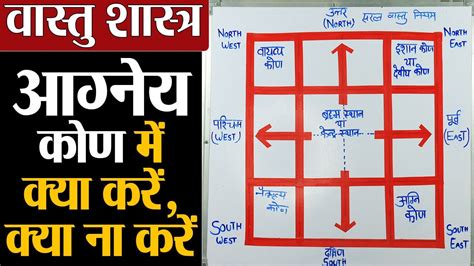 वास्तु शास्त्र
आग्नेय
कोण में
क्या करें,
क्या ना करें
उत्तर
(NORTH)
सरल वास्तु नियम
NORTH
WEST
NORTH
EAST
वायव्य
कोण
ईशान कोण
या
देवीय कोण
पश्चिम
(WEST)
ब्रह्म स्थान
या
केन्द्र स्थान
पूर्व
(EAST)
नैऋत्य
कोण
अग्नि
कोण
SOUTH
WEST
SOUTH
EAST
दक्षिण
SOUTH